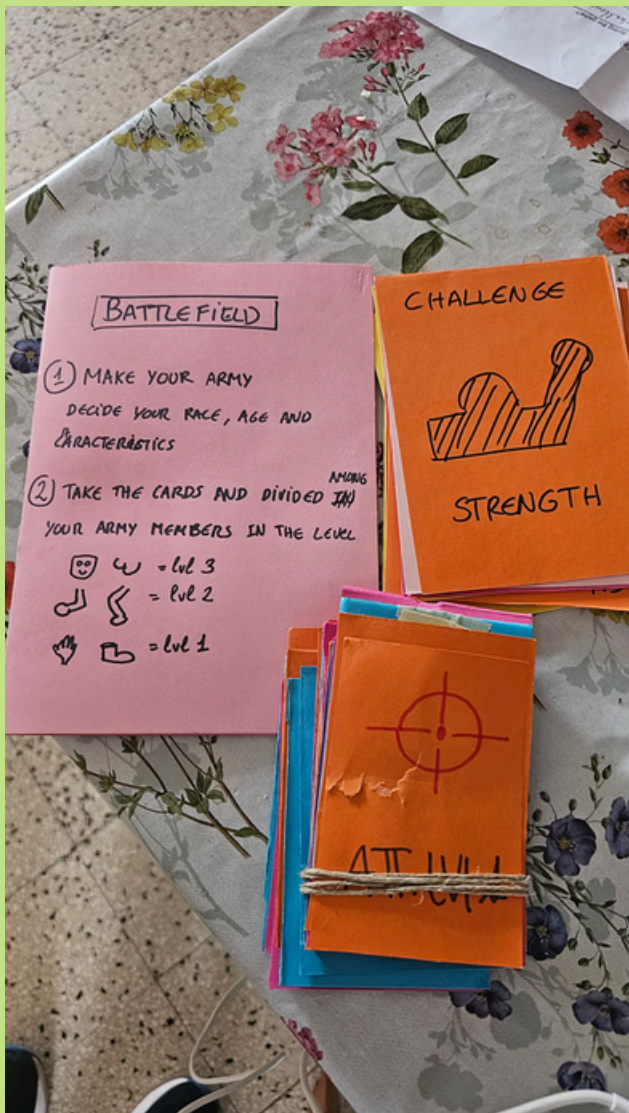 BATTLEFIELD
1 MAKE YOUR ARMY
DECIDE YOUR RACE, AGE AND
CARACTERISTICS
AMONG
2 TAKE THE CARDS AND DIVIDED
YOUR ARMY MEMBERS IN THE LEVEL
= lvl 3
= lvl 2
= lvl 1
CHALLENGE
STRENGTH